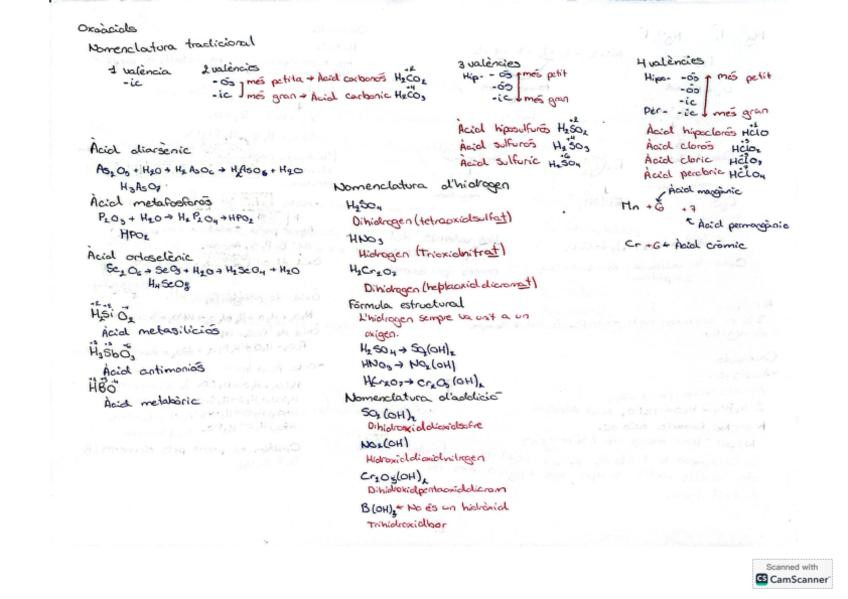 Oxoàcids
Nomenclatura tradicional
1 valència
-ic
2 valències
-ós més petita → Àcid carbonós H₂CO₂
+2
-ic més gran → Àcid carbonic H₂CO₃
+4
3 valències
Hip- -ós més petit
-ós
-ic més gran
Àcid hiposulfurós H₂SO₂
+2
Àcid sulfurós H₂SO₃
+4
Àcid sulfuric H₂SO₄
+6
4 valències
Hipo- -ós més petit
-ós
-ic
Per- -ic més gran
Àcid hipoclorós HClO
Àcid clorós HClO₂
Àcid cloric HClO₃
Àcid percloric HClO₄
Àcid mangànic
Mn +6 +7
Àcid permangànic
Cr +6 Àcid cròmic
Àcid diarsènic
H₃AsO₇
Àcid metafosforós
P₂O₃ + H₂O → H₂P₂O₄ → HPO₂
HPO₂
Àcid ortoselènic
H₄SeO₅
H₂SiO₂
Àcid metasiliciós
H₃SbO₃
Àcid antimoniós
HBO
Àcid metabòric
Nomenclatura d'hidrogen
H₂SO₄
Dihidrogen (tetraoxidsulfat)
HNO₃
Hidrogen (Trioxidnitrat)
H₂Cr₂O₇
Dihidrogen (heptaoxid dicromat)
Fórmula estructural
L'hidrogen sempre va unit a un
oxigen.
H₂SO₄ → SO₂(OH)₂
HNO₃ → NO₂(OH)
HCr₂O₇ → Cr₂O₅(OH)₂
Nomenclatura d'addició
SO₂(OH)₂
Dihidroxiddioxidsofre
NO₂(OH)
Hidroxiddioxidnitrogen
Cr₂O₅(OH)₂
Dihidroxidpentaoxiddicrom
B(OH)₃ ← No és un hidròxid
Trihidroxidbor
Scanned with
CS CamScanner